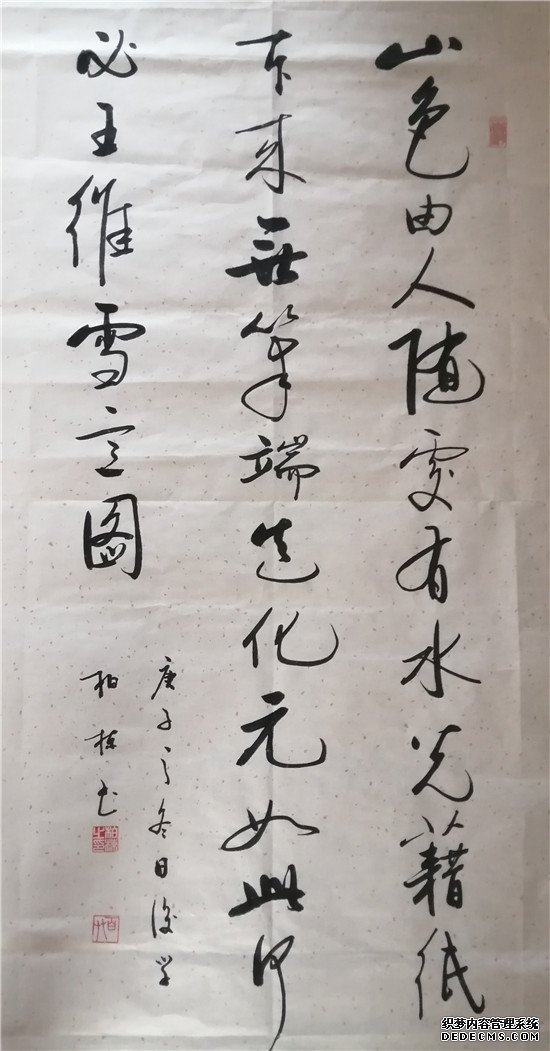 山色由人随處有水光籍紙
本来無筆端造化元如此何
必王維雪意圖
庚子之冬日後学
柏栋书
织梦内容管理系统
DEDECMS.COM